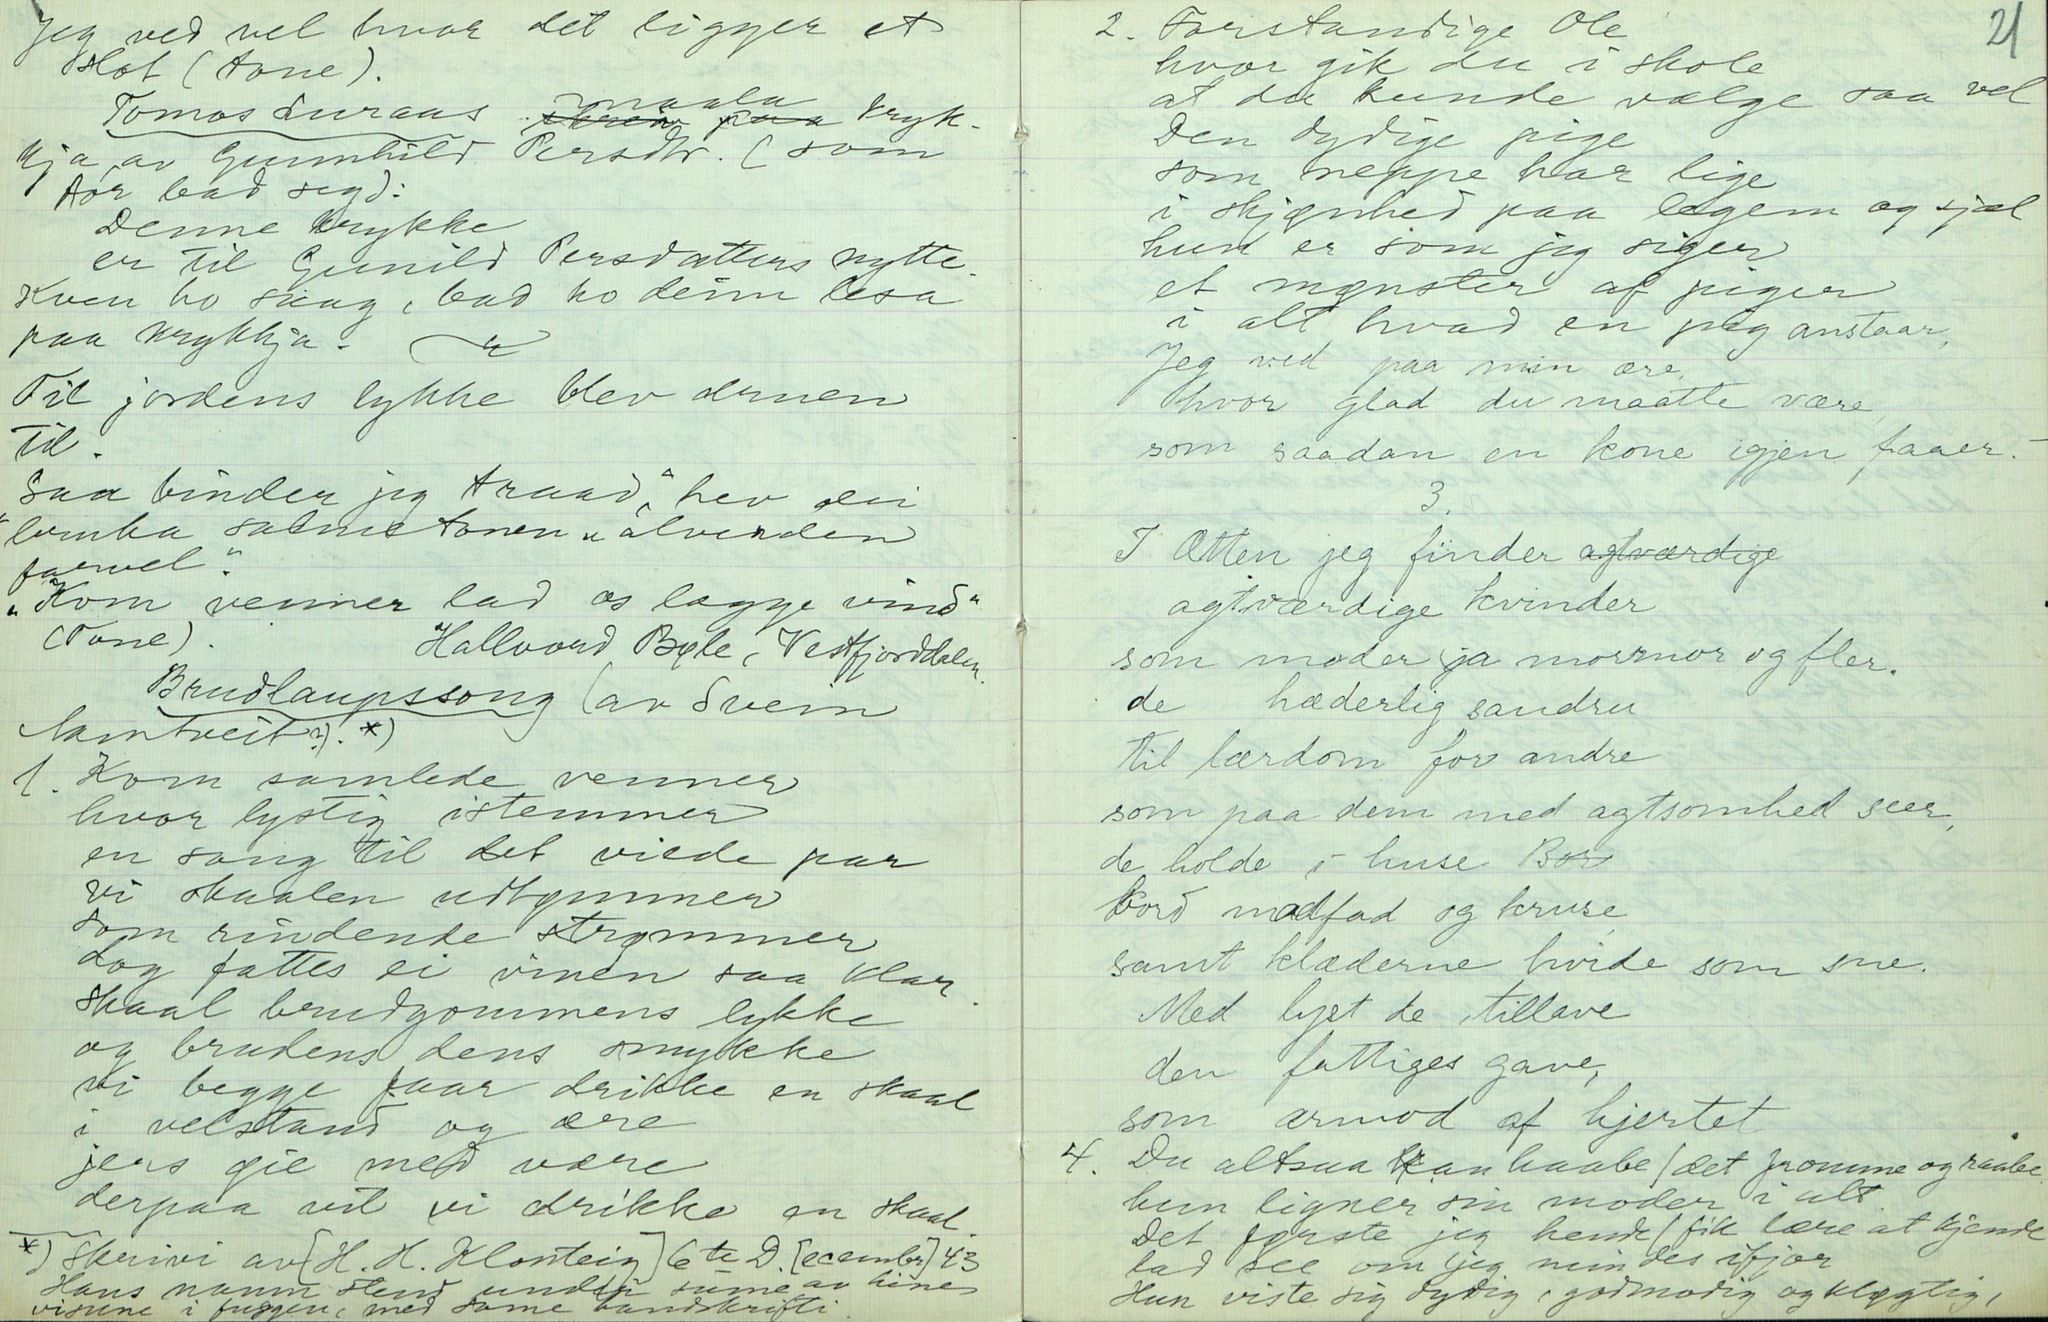 Jeg ved vel hvor det ligger et
slot (tone).
Tomas Luraas maala
skreiv paa kryk-
kja av Gunnhild Persdtr. (som
för bad seg):
Denne krykke
er til Gunild Persdatters nytte.
Kven ho saag, bad ho deim lesa
paa krykkja.
Til jordens lykke blev druen
til.
"Saa binder jeg traad," hev ein
bruka salmetonen "al verden
farvel".
"Kom venner lad os lægge vind"
(Tone). Hallvord Bøle, Vestfjorddalen.
Brudlaupssong (av Svein
Namtveit?). *)
1. Kom samlede venner
hvor lystig istemmer
en sang til det viede par
vi skaalen udtømmer
som rindende strømmer
dog fattes ei vinen saa klar.
skaal brudgommens lykke
og brudens dens smykke
vi begge paar drikke en skaal
i velstand og ære
jers gie med være
derpaa vil vi drikke en skaal.
*) Skrivi av [H. H. Klonteig] 6te D. [ecember] 43
Hans namn stend under sume av hine
visune i fuggen, med same handskrifti.
21
2. Forstandige Ole
hvor gik du i skole
at du kunde vælge saa vel
Den dydige pige
som neppe har lige
i skjønhed paa legem og sjæl
hun er som jeg siger
et mønster af piger
i alt hvad en pig anstaar,
Jeg ved paa min ære,
hvor glad du maatte være,
som saadan en kone igjen faaer. -
3.
I Ætten jeg finder agtværdige
agtværdige kvinder
som moder ja mormor og fler.
de hæderlig sandru
til lærdom for andre
som paa dem med agtsomhed seer,
de holde i huse Bor
bord madfad og kruse
samt klæderne hvide som sne.
Med lyst de tillave
den fattiges gave,
som armod af hjertet
4. Du altsaa kan haabe / det fromme og raabe
hun ligner sin moder i alt.
Det første jeg hende / fik lære at kjende
lad see om jeg mindes ifjor
Hun viste sig dydig, godmodig og kløgtig,